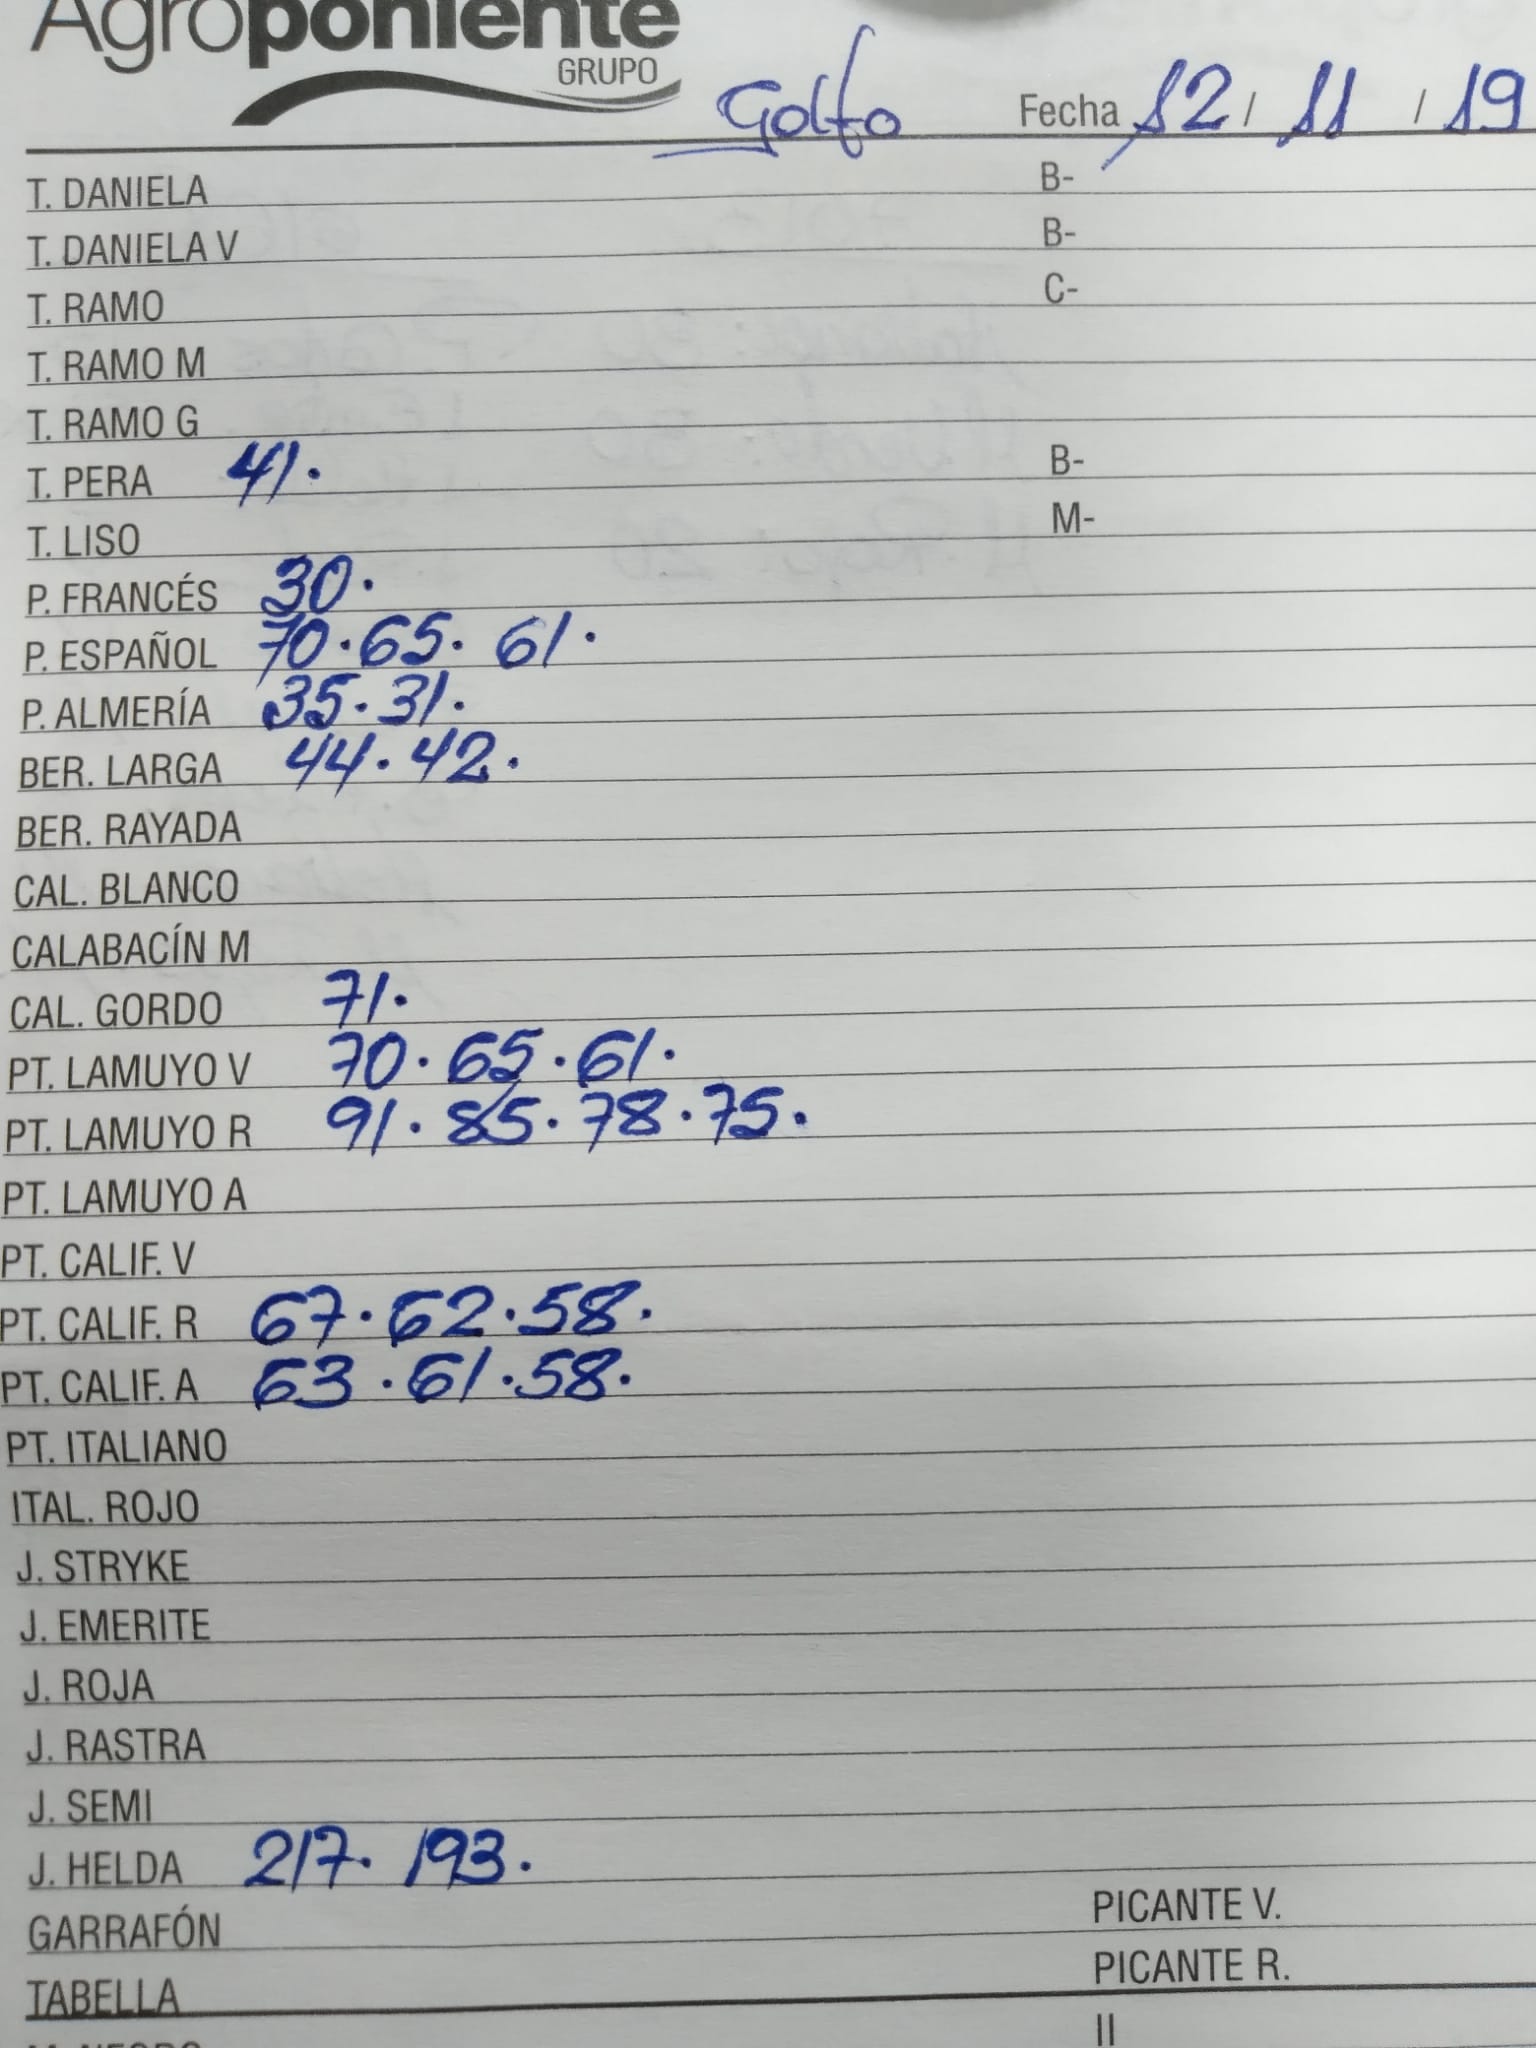 Agroponiente
GRUPO
Golfo Fecha 12 / 11 / 19
T. DANIELA B-
T. DANIELA V B-
T. RAMO C-
T. RAMO M
T. RAMO G
T. PERA 41. B-
T. LISO M-
P. FRANCÉS 30.
P. ESPAÑOL 70.65. 61.
P. ALMERÍA 35.31.
BER. LARGA 44.42.
BER. RAYADA
CAL. BLANCO
CALABACÍN M
CAL. GORDO 71.
PT. LAMUYO V 70.65.61.
PT. LAMUYO R 91.85.78.75.
PT. LAMUYO A
PT. CALIF. V
PT. CALIF. R 67.62.58.
PT. CALIF. A 63.61.58.
PT. ITALIANO
ITAL. ROJO
J. STRYKE
J. EMERITE
J. ROJA
J. RASTRA
J. SEMI
J. HELDA 217. 193.
GARRAFÓN PICANTE V.
TABELLA PICANTE R.
II